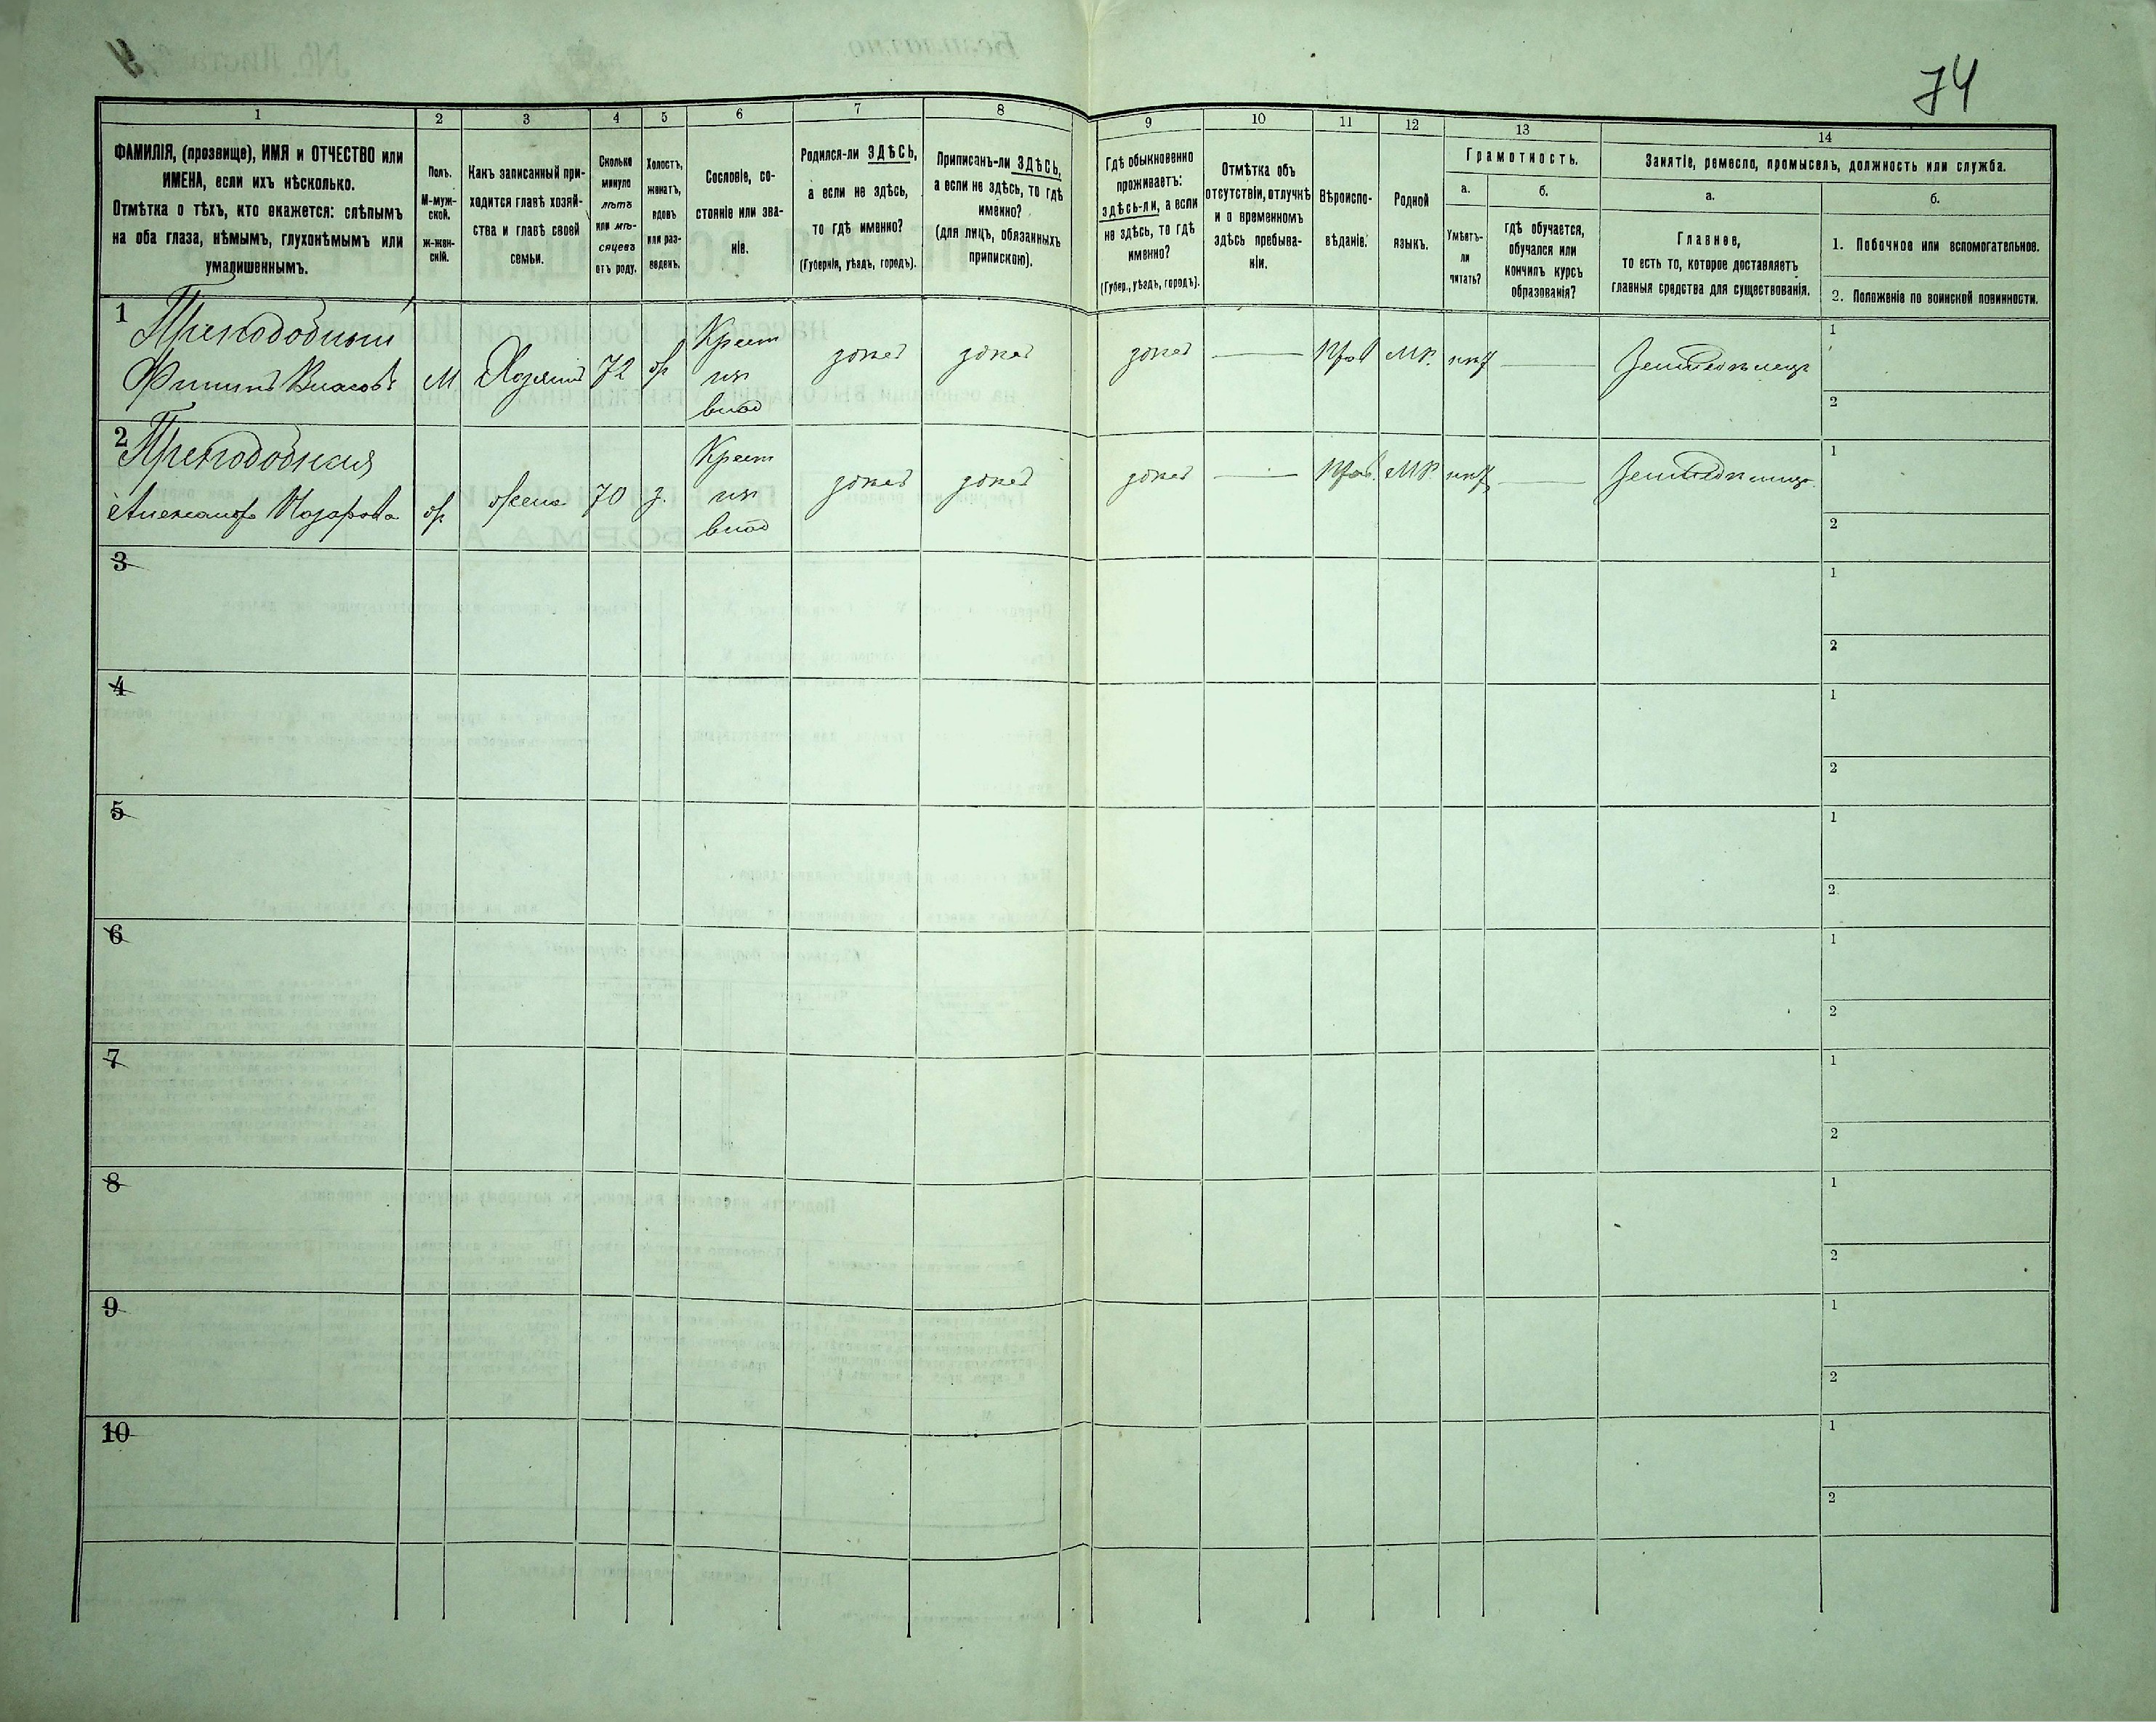 74
1 2 3 4 5 6 7 8 9 10 11 12 13 14
ФАМИЛІЯ, (прозвище), ИМЯ и ОТЧЕСТВО или
ИМЕНА, если ихъ нѣсколько.
Отмѣтка о тѣхъ, кто окажется: слѣпымъ
на оба глаза, нѣмымъ, глухонѣмымъ или
умалишеннымъ.
Полъ.
М-муж-
ской.
ж-жен-
скій.
Какъ записанный при-
ходится главѣ хозяй-
ства и главѣ своей
семьи.
Сколько
минуло
лѣтъ
или мѣ-
сяцевъ
отъ роду.
Холостъ,
женатъ,
вдовъ
или раз-
веденъ.
Сословіе, со-
стояніе или зва-
ніе.
Родился-ли ЗДѢСЬ,
а если не здѣсь,
то гдѣ именно?
(Губернія, уѣздъ, городъ).
Приписанъ-ли ЗДѢСЬ,
а если не здѣсь, то гдѣ
именно?
(для лицъ, обязанныхъ
припискою).
Гдѣ обыкновенно
проживаетъ:
здѣсь-ли, а если
не здѣсь, то гдѣ
именно?
(Губер., уѣздъ, городъ).
Отмѣтка объ
отсутствіи, отлучкѣ
и о временномъ
здѣсь пребыва-
ніи.
Вѣроиспо-
вѣданіе.
Родной
языкъ.
Грамотность.
а.
Умѣетъ-
ли
читать?
б.
гдѣ обучается,
обучался или
кончилъ курсъ
образованія?
Занятіе, ремесло, промыселъ, должность или служба.
а.
Главное,
то есть то, которое доставляетъ
главныя средства для существованія.
б.
1. Побочное или вспомогательное.
2. Положеніе по воинской повинности.
1
Преподобный
Филипъ Власовъ
М
Хозяинъ
72
ж
Крест
изъ
влад
здѣсь
здѣсь
здѣсь
Прав
МР.
нѣтъ
Земледѣлецъ
1
2
2
Преподобная
Александра Назарова
ж
жена
70
з.
Крест
изъ
влад
здѣсь
здѣсь
здѣсь
Прав.
МР.
нѣтъ
1
2
3
1
2
4
1
2
5
1
2
6
1
2
7
1
2
8
1
2
9
1
2
10
1
2